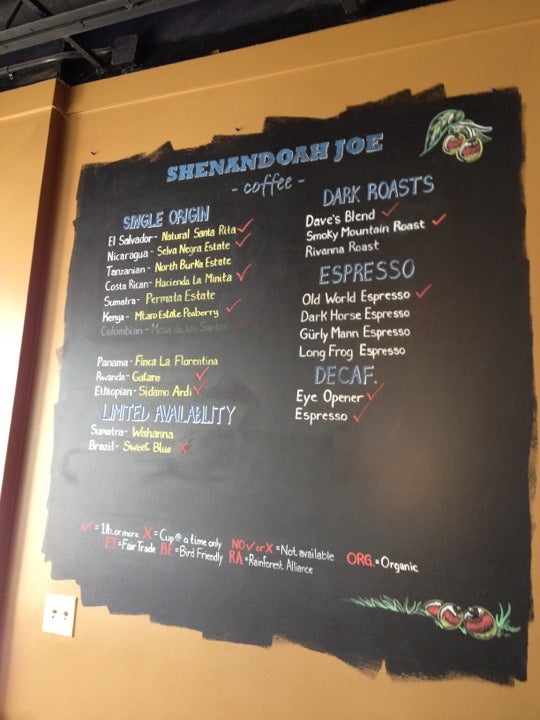 SHENANDOAH JOE
- coffee -
SINGLE ORIGIN
El Salvador - Natural Santa Rita ✓
Nicaragua - Selva Negra Estate ✓
Tanzanian - North Burka Estate
Costa Rican - Hacienda La Minita ✓
Sumatra - Permata Estate
Kenya - Mtaro Estate Peaberry ✓
Colombian - Mesa de los Santos
Panama - Finca La Florentina
Rwanda - Gatare ✓
Ethiopian - Sidamo Ardi ✓
LIMITED AVAILABILITY
Sumatra - Wahanna
Brazil - Sweet Blue X
DARK ROASTS
Dave's Blend ✓
Smoky Mountain Roast ✓
Rivanna Roast
ESPRESSO
Old World Espresso ✓
Dark Horse Espresso
Gürly Mann Espresso
Long Frog Espresso
DECAF.
Eye Opener ✓
Espresso ✓
✓ = 1 lb. or more X = Cup @ a time only NO ✓ or X = Not available
FT = Fair Trade BF = Bird Friendly RA = Rainforest Alliance ORG. = Organic